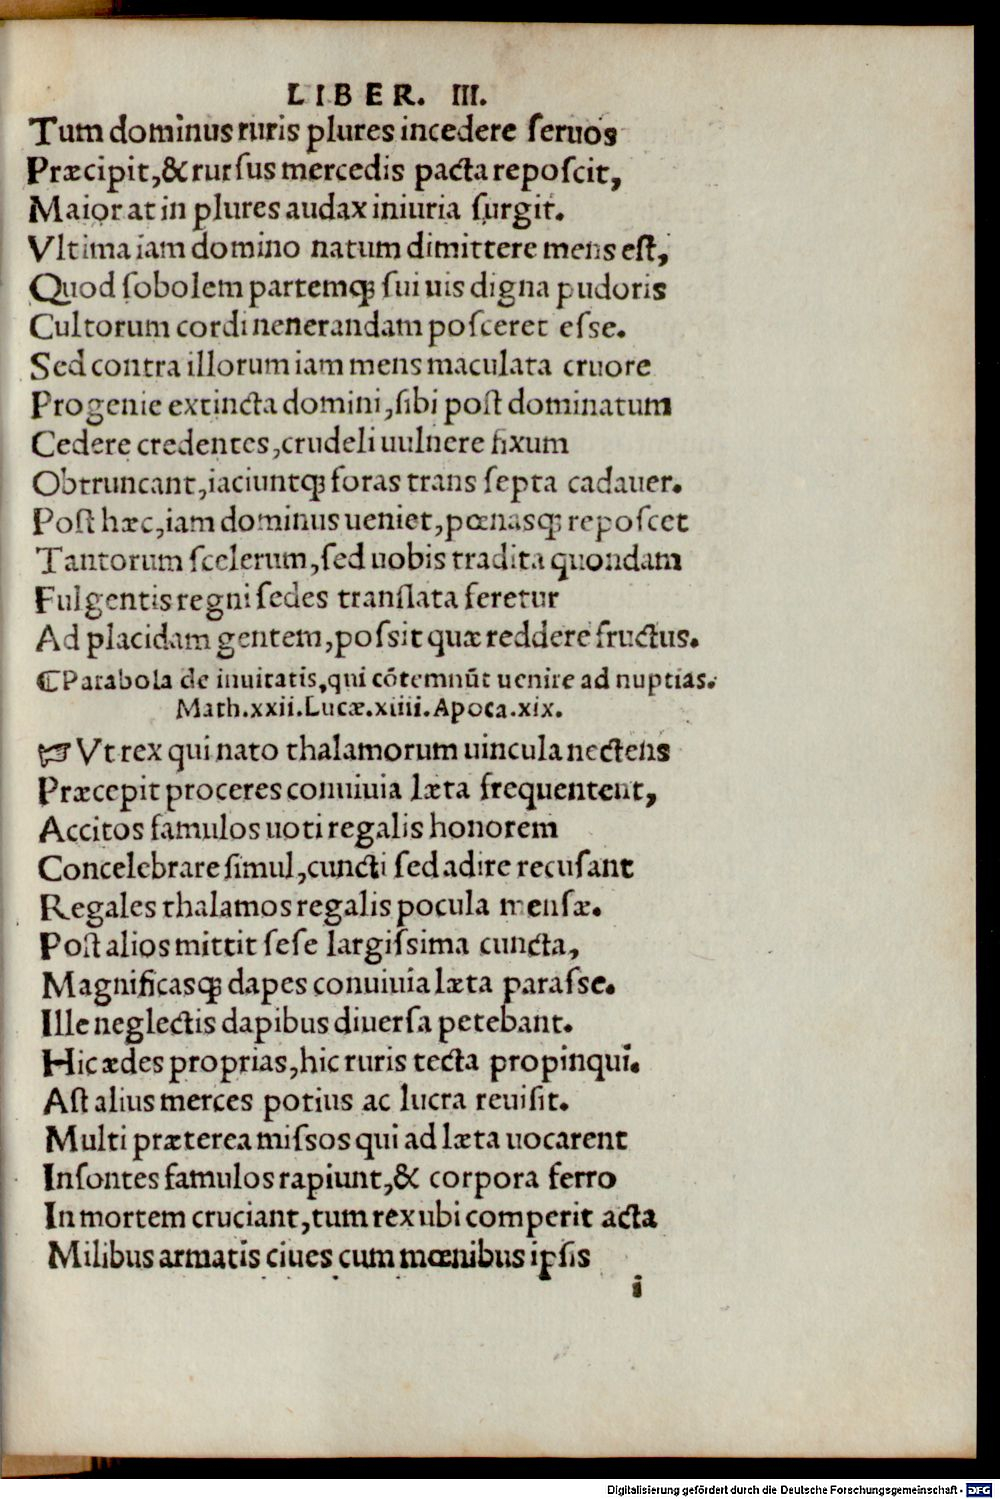 LIBER. III.
Tum dominus ruris plures incedere ſeruos
Præcipit,&rurſus mercedis pacta repoſcit,
Maior at in plures audax iniuria ſurgit.
Vltima iam domino natum dimittere mens eſt,
Quod ſobolem partemqꝫ ſui uis digna pudoris
Cultorum cordi nenerandam poſceret eſſe.
Sed contra illorum iam mens maculata cruore
Progenie extincta domini,ſibi poſt dominatum
Cedere credentes,crudeli uulnere fixum
Obtruncant,iaciuntqꝫ foras trans ſepta cadauer.
Poſt hæc,iam dominus ueniet,pœnasqꝫ repoſcet
Tantorum ſcelerum,ſed uobis tradita quondam
Fulgentis regni ſedes tranſlata feretur
Ad placidam gentem,poſsit quæ reddere fructus.
⁋Parabola de inuitatis,qui cõtemnũt uenire ad nuptias.
Math.xxii.Lucæ.xiiii.Apoca.xix.
☞ Vt rex qui nato thalamorum uincula nectens
Præcepit proceres conuiuia læta frequentent,
Accitos famulos uoti regalis honorem
Concelebrare ſimul,cuncti ſed adire recuſant
Regales thalamos regalis pocula menſæ.
Poſt alios mittit ſeſe largiſsima cuncta,
Magnificasqꝫ dapes conuiuia læta paraſſe.
Ille neglectis dapibus diuerſa petebant.
Hic ædes proprias,hic ruris tecta propinqui.
Aſt alius merces potius ac lucra reuiſit.
Multi præterea miſsos qui ad læta uocarent
Inſontes famulos rapiunt,& corpora ferro
In mortem cruciant,tum rex ubi comperit acta
Milibus armatis ciues cum mœnibus ipſis
i
Digitalisierung gefördert durch die Deutsche Forschungsgemeinschaft - DFG